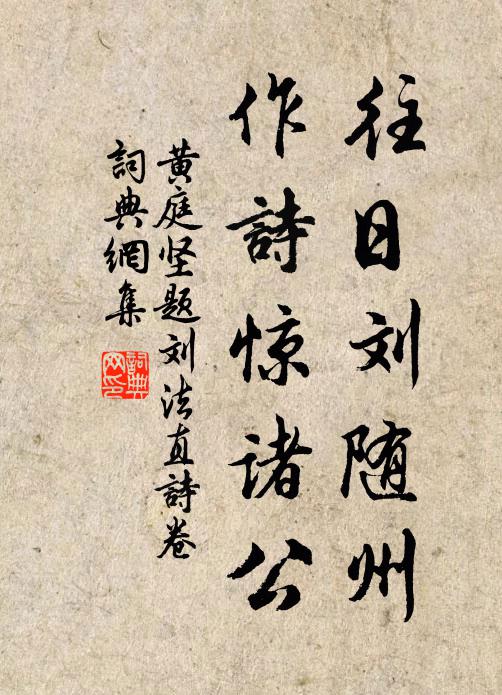 往日刘随州
作詩惊诸公
黄庭坚题刘法直詩卷
詞典網集
詞典网印